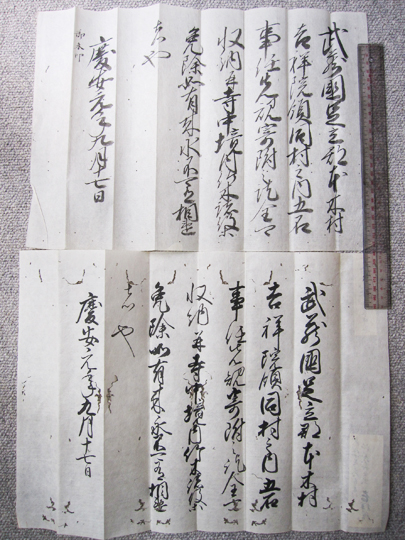 武蔵國足立郡本木村
吉祥院領同村之内五石
事任先規寄附之訖全可
収納并寺中境内竹木諸役
免除如有来永不可有相違
者也
慶安元年九月十七日
御朱印
武蔵國足立郡本木村
吉祥院領同村之内五石
事任先規寄附之訖全可
収納并寺中境内竹木諸役
免除如有来永不可有相違
者也
慶安元年九月十七日